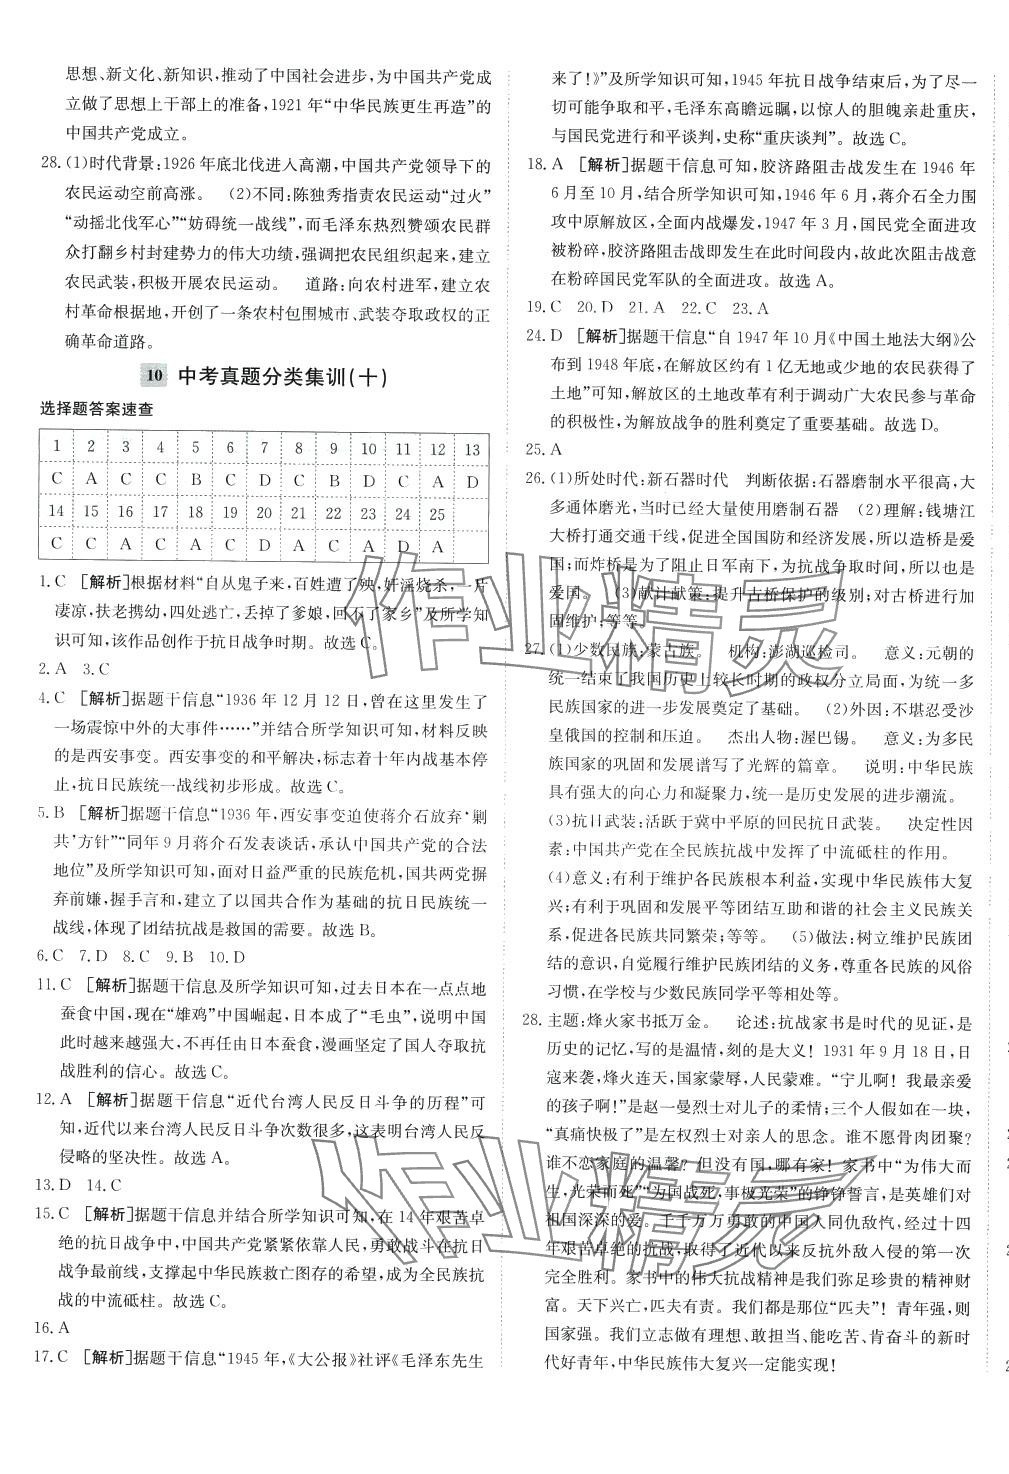 思想、新文化、新知识,推动了中国社会进步,为中国共产党成
立做了思想上干部上的准备,1921年“中华民族更生再造”的
中国共产党成立。
28.(1)时代背景:1926年底北伐进入高潮,中国共产党领导下的
农民运动空前高涨。 (2)不同:陈独秀指责农民运动“过火”
“动摇北伐军心”“妨碍统一战线”,而毛泽东热烈赞颂农民群
众打翻乡村封建势力的伟大功绩,强调把农民组织起来,建立
农民武装,积极开展农民运动。 道路:向农村进军,建立农
村革命根据地,开创了一条农村包围城市、武装夺取政权的正
确革命道路。
10 中考真题分类集训(十)
选择题答案速查
1 2 3 4 5 6 7 8 9 10 11 12 13
C A C C B C D C B D C A D
14 15 16 17 18 19 20 21 22 23 24 25
C C A C A C D A C A D A
1.C [解析]根据材料“自从鬼子来,百姓遭了殃,奸淫烧杀,一片
凄凉,扶老携幼,四处逃亡,丢掉了爹娘,回不了家乡”及所学知
识可知,该作品创作于抗日战争时期。故选C。
2.A 3.C
4.C [解析]据题干信息“1936年12月12日,曾在这里发生了
一场震惊中外的大事件……”并结合所学知识可知,材料反映
的是西安事变。西安事变的和平解决,标志着十年内战基本停
止,抗日民族统一战线初步形成。故选C。
5.B [解析]据题干信息“1936年,西安事变迫使蒋介石放弃‘剿
共’方针”“同年9月蒋介石发表谈话,承认中国共产党的合法
地位”及所学知识可知,面对日益严重的民族危机,国共两党摒
弃前嫌,握手言和,建立了以国共合作为基础的抗日民族统一
战线,体现了团结抗战是救国的需要。故选B。
6.C 7.D 8.C 9.B 10.D
11.C [解析]据题干信息及所学知识可知,过去日本在一点点地
蚕食中国,现在“雄鸡”中国崛起,日本成了“毛虫”,说明中国
越来越强大,不再任由日本蚕食,漫画坚定了国人夺取抗
战胜利的信心。故选C。
12.A [解析]据题干信息“近代台湾人民反日斗争的历程”可
知,近代以来台湾人民反日斗争次数很多,这表明台湾人民反
侵略的坚决性。故选A。
13.D 14.C
15.C [解析]据题干信息并结合所学知识可知,在14年艰苦卓
绝的抗日战争中,中国共产党紧紧依靠人民,勇敢战斗在抗日
战争最前线,支撑起中华民族救亡图存的希望,成为全民族抗
战的中流砥柱。故选C。
16.A
17.C [解析]据题干信息“1945年,《大公报》社评《毛泽东先生
来了!》”及所学知识可知,1945年抗日战争结束后,为了尽一
切可能争取和平,毛泽东高瞻远瞩,以惊人的胆魄亲赴重庆,
与国民党进行和平谈判,史称“重庆谈判”。故选C。
18.A [解析]据题干信息可知,胶济路阻击战发生在1946年
6月至10月,结合所学知识可知,1946年6月,蒋介石全力围
攻中原解放区,全面内战爆发,1947年3月,国民党全面进攻
被粉碎,胶济路阻击战即发生在此时间段内,故此次阻击战意
在粉碎国民党军队的全面进攻。故选A。
19.C 20.D 21.A 22.C 23.A
24.D [解析]据题干信息“自1947年10月《中国土地法大纲》公
布到1948年底,解放区约有1亿无地或少地的农民获得了
土地”可知,解放区的土地改革有利于调动广大农民参与革命
的积极性,为解放战争的胜利奠定了重要基础。故选D。
25.A
26.(1)所处时代:新石器时代 判断依据:石器磨制水平很高,大
多通体磨光,当时已经大量使用磨制石器 (2)理解:钱塘江
大桥打通交通干线,促进全国国防和经济发展,所以造桥是爱
国;而炸桥是为了阻止日军南下,为抗战争取时间,所以也是
爱国。 (3)献计献策:提升古桥保护的级别;对古桥进行加
固维护;等等。
27.(1)少数民族:蒙古族。 机构:澎湖巡检司。 意义:元朝的
统一结束了我国历史上较长时期的政权分立局面,为统一多
民族国家的进一步发展奠定了基础。 (2)外因:不堪忍受沙
皇俄国的控制和压迫。 杰出人物:渥巴锡。 意义:为多民
族国家的巩固和发展谱写了光辉的篇章。 说明:中华民族
具有强大的向心力和凝聚力,统一是历史发展的进步潮流。
(3)抗日武装:活跃于冀中平原的回民抗日武装。 决定性因
素:中国共产党在全民族抗战中发挥了中流砥柱的作用。
(4)意义:有利于维护各民族根本利益,实现中华民族伟大复
兴;有利于巩固和发展平等团结互助和谐的社会主义民族关
系,促进各民族共同繁荣;等等。 (5)做法:树立维护民族团
结的意识,自觉履行维护民族团结的义务,尊重各民族的风俗
习惯,在学校与少数民族同学平等相处等。
28.主题:烽火家书抵万金。 论述:抗战家书是时代的见证,是
历史的记忆,写的是温情,刻的是大义!1931年9月18日,日
寇来袭,烽火连天,国家蒙辱,人民蒙难。“宁儿啊!我最亲爱
的孩子啊!”是赵一曼烈士对儿子的柔情;三个人假如在一块,
“真痛快极了”是左权烈士对亲人的思念。谁不愿骨肉团聚?
谁不恋家庭的温馨?但没有国,哪有家!家书中“为伟大而
生,光荣而死”“为国战死,事极光荣”的铮铮誓言,是英雄们对
祖国深深的爱。千千万万勇敢的中国人同仇敌忾,经过十四
年艰苦卓绝的抗战,取得了近代以来反抗外敌入侵的第一次
完全胜利。家书中的伟大抗战精神是我们弥足珍贵的精神财
富。天下兴亡,匹夫有责。我们都是那位“匹夫”!青年强,则
国家强。我们立志做有理想、敢担当、能吃苦、肯奋斗的新时
代好青年,中华民族伟大复兴一定能实现!
作业精灵
作业精灵